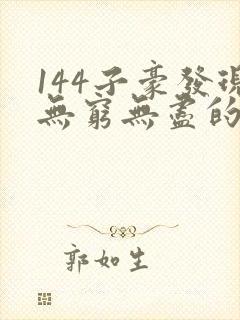 144子豪發現
無窮無盡的
郭如生